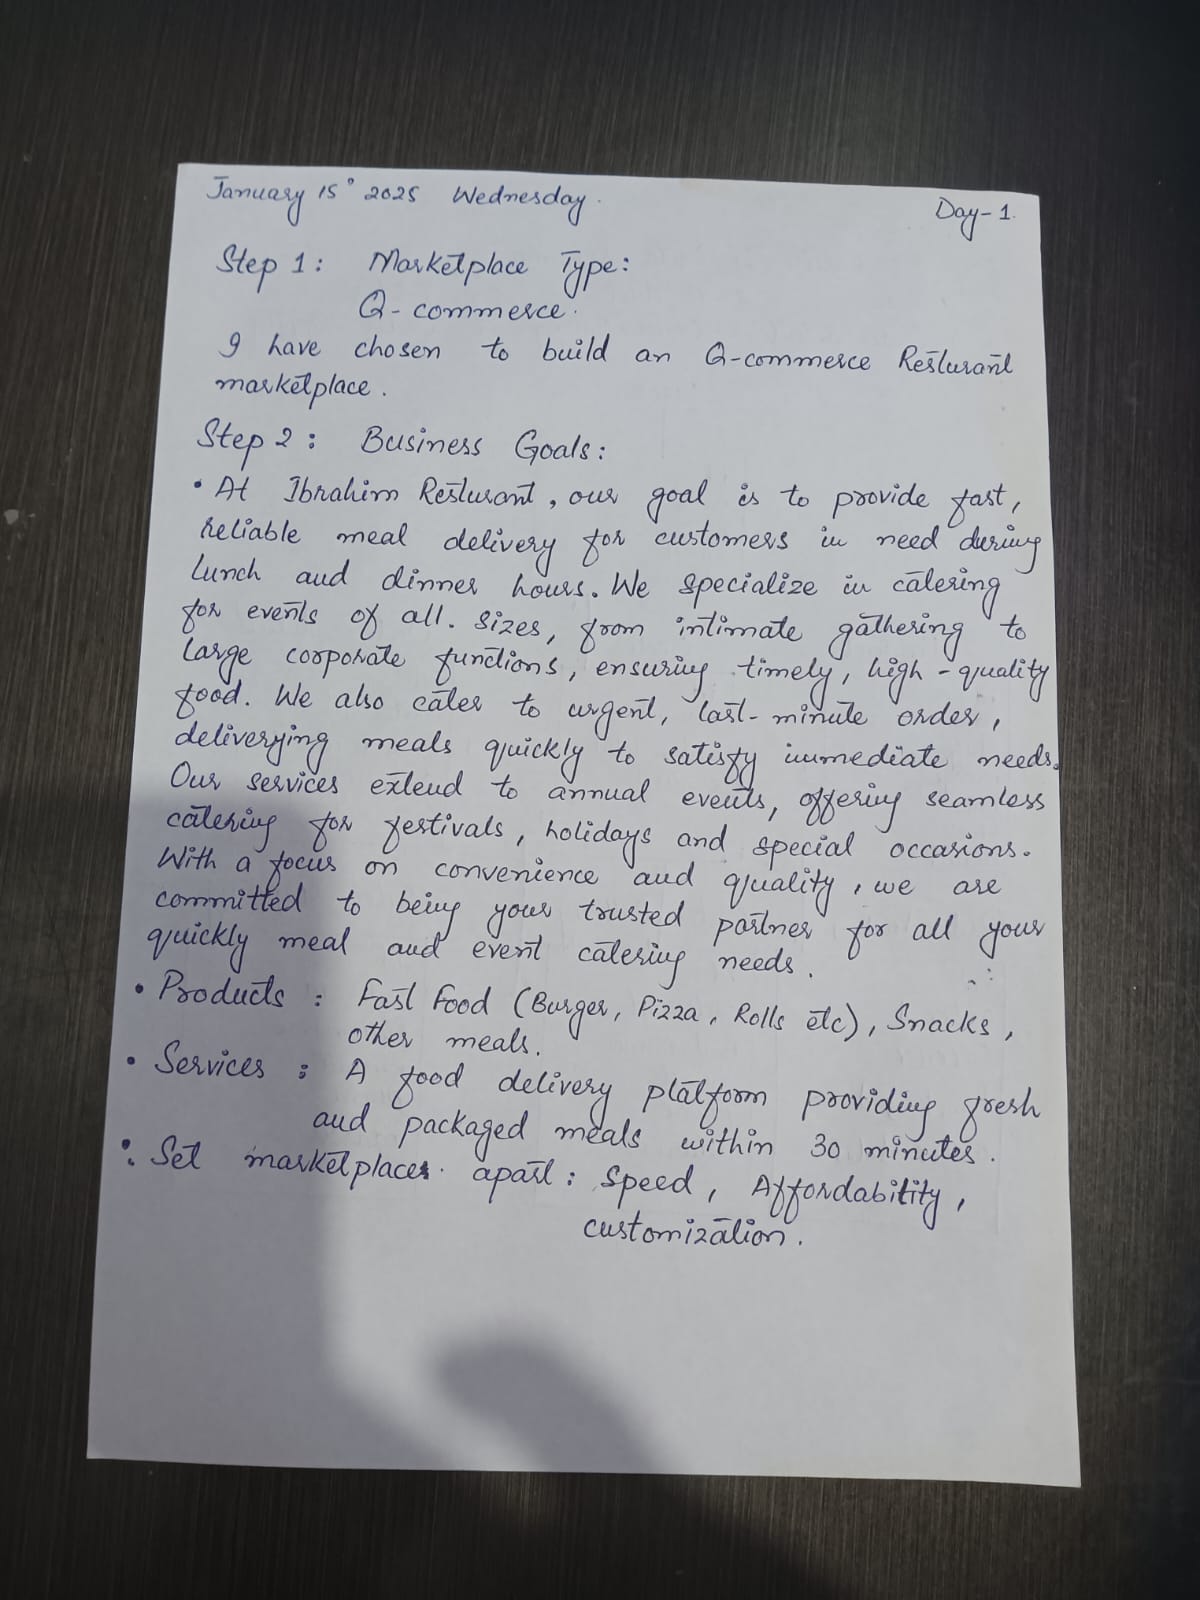 January 15° 2025 Wednesday.
Day-1.
Step 1: Marketplace Type:
Q-commerce.
I have chosen to build an Q-commerce Resturant
marketplace.
Step 2: Business Goals:
• At Ibrahim Resturant, our goal is to provide fast,
reliable meal delivery for customers in need during
lunch and dinner hours. We specialize in catering
for events of all. sizes, from intimate gathering to
large corporate functions, ensuring timely, high-quality
food. We also cater to urgent, last-minute order,
deliverying meals quickly to satisfy immediate needs.
Our services extend to annual events, offering seamless
catering for festivals, holidays and special occasions.
With a focus on convenience and quality, we are
committed to being your trusted partner for all your
quickly meal and event catering needs.
• Products : Fast Food (Burger, Pizza, Rolls etc), Snacks,
other meals.
• Services : A food delivery platform providing fresh
and packaged meals within 30 minutes.
• Set marketplaces apart: Speed, Affordability,
customization.